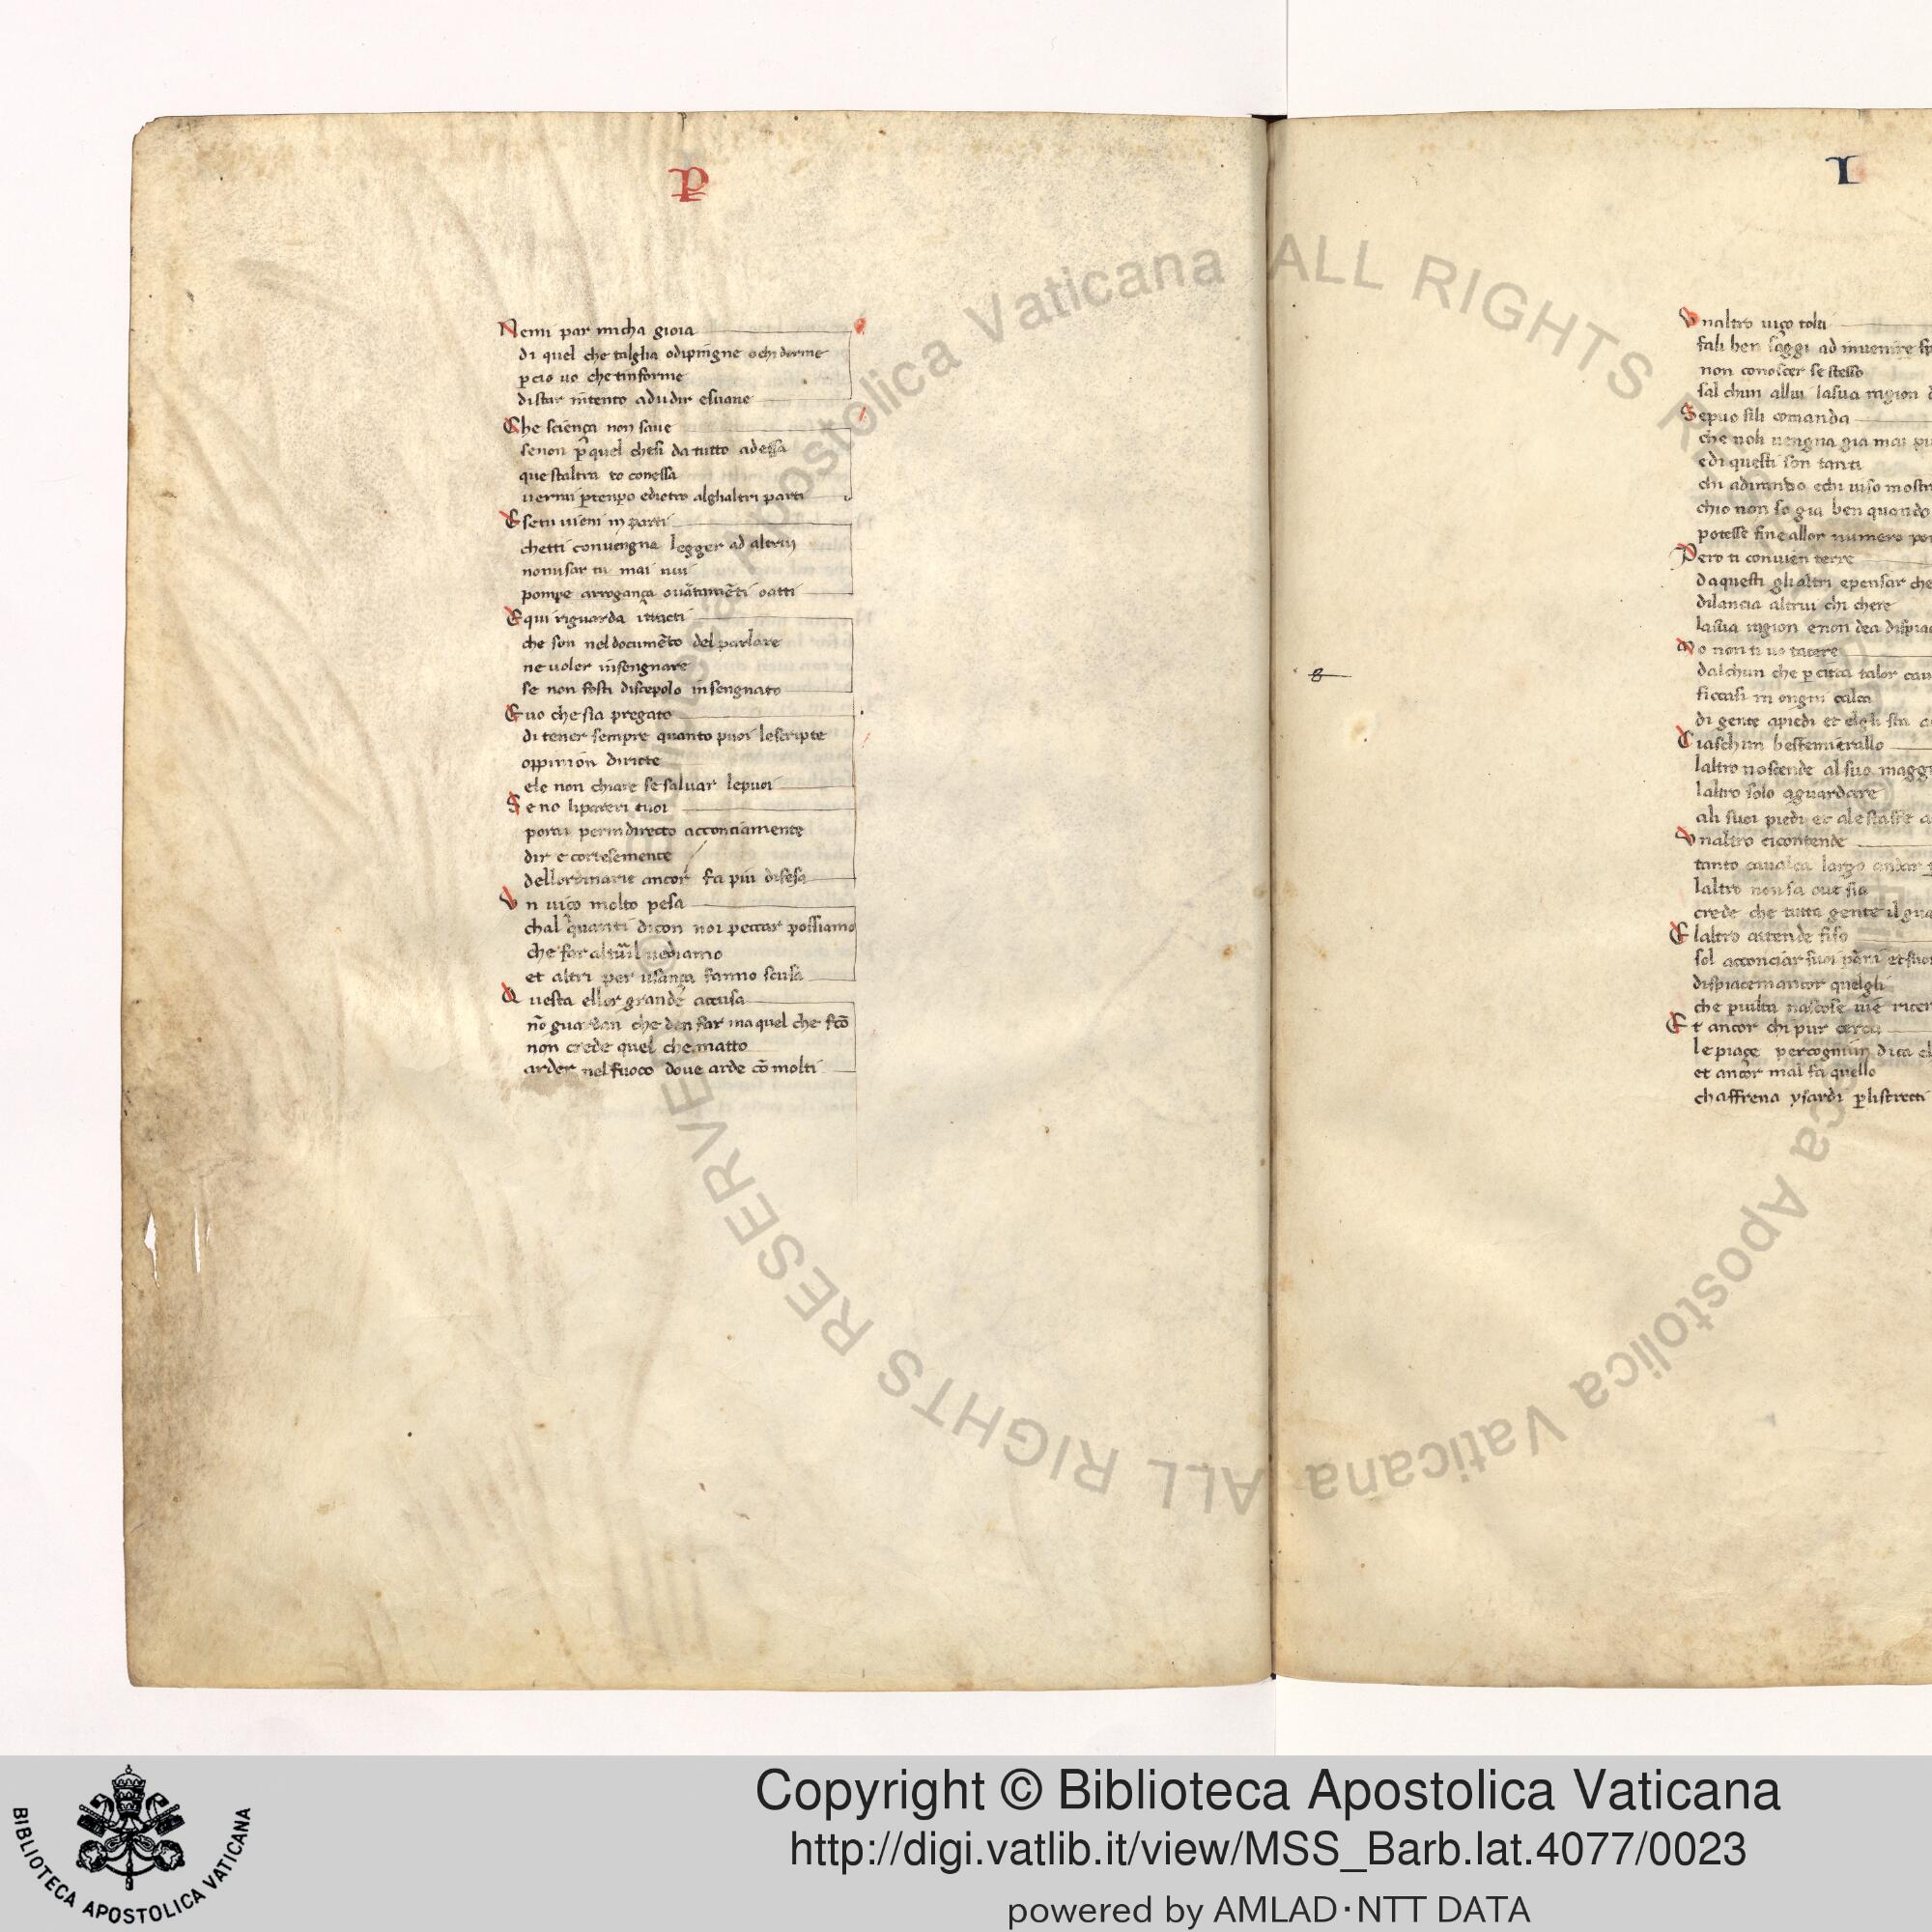 P
Nenti par micha gioia
di quel che talglia odipingne ochi dorme
pcio uo che tinforme
distar intento adudir esuaue
Che sciença non saue
senon p quel chesi da tutto adessa
questaltra to conessa
uerrai ptenpo edietro alghaltri parti
Esetu uieni in parti
chetti conuengna legger ad altrui
nonusar tu mai
pompe arrogança ouãtamẽti oatti
Equi riguarda itracti
che son nel documẽto del parlare
ne uoler insengnare
se non fosti discepolo insengnato
Euo che sia pregato
di tener sempre quanto puoi lescripte
oppinion diricte
ele non chiare se saluar lepuoi
Se no lipareri tuoi
porai perindirecto acconciamente
dir e cortesemente
dellordinarie ancor fa piu difesa
Un uiço molto pesa
chal quanti dicon noi peccar possiamo
che far altr il uediamo
et altri per usança fanno scusa
Questa ellor grande accusa
nõ guardan che den far ma quel che fcõ
non crede quel che matto
arder nel fuoco doue arde cõ molti
I
8
Unaltro uiço tolti
fali ben saggi ad inuenire
non conoscer se stesso
sal chun allui lasua ragion
Sepuo sili comanda
che noli uengna gia mai
edi questi son tanti
chi adirando echi uiso
chio non so gia ben quando
potesse fine allor numero
Pero ti conuien terre
daquesti glialtri epensar che
dilancia altrui chi chere
lasua ragion enon dea
Io non ti uo tacere
dalchun che p citta talor
ficcasi in ongni calca
di gente apiedi et elgli sta
Ciaschun bestemierallo
laltro noscende al suo
laltro solo aguardare
ali suoi piedi et ale staffe
Unaltro cicontende
tanto caualca largo andar
laltro non sa oue sia
crede che tutta gente il
Elaltro attende fiso
sol acconciar suoi pãni
dispiacemi ancor quelgli
che piulta nascose
Et ancor chi pur cerca
le piaçe percogniun dica
et ancor mal fa quello
chaffrena ysardi p listrecti
Copyright © Biblioteca Apostolica Vaticana
http://digi.vatlib.it/view/MSS_Barb.lat.4077/0023
powered by AMLAD·NTT DATA
BIBLIOTECA APOSTOLICA VATICANA
Biblioteca Apostolica Vaticana ALL RIGHTS RESERVED